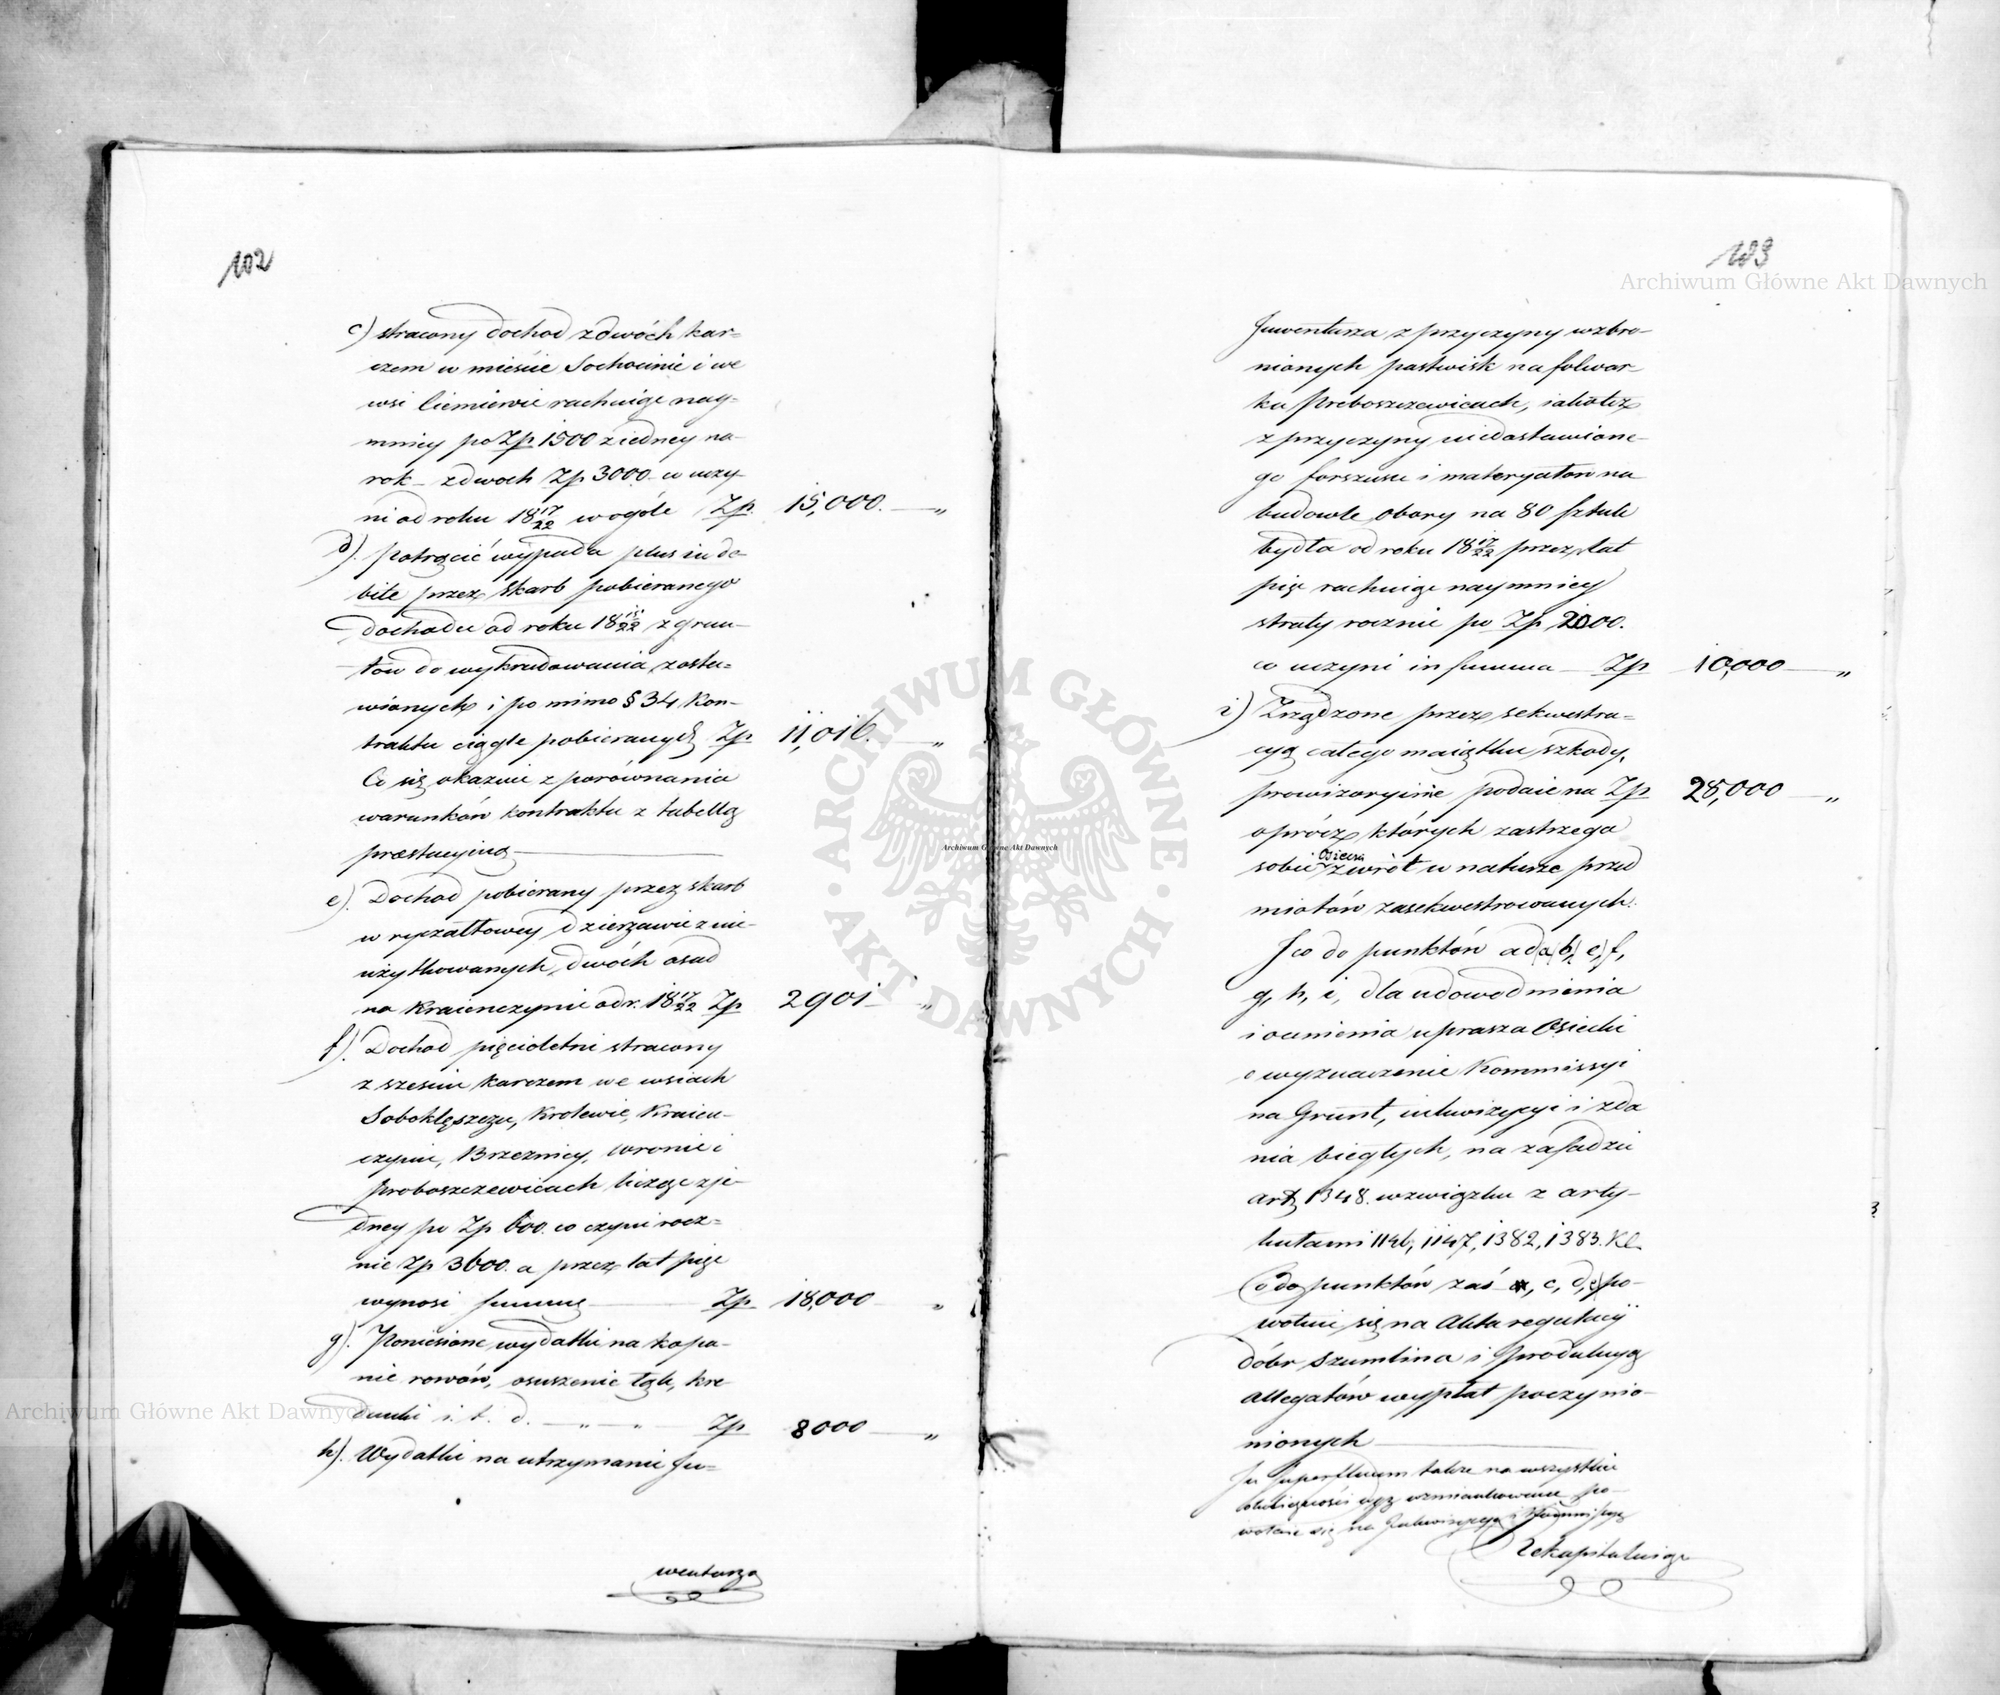 102
c) stracony dochod z dwóch kar=
czem w mieście Sochocinie i we
wsi Ciemiewie rachuiąc nay=
mniey po Zp 1500 z iedney na
rok – z dwoch Zp 3000 – co uczy
ni od roku 18 17/22 wogóle Zp. 15,000. — „
d). Potrącić wypada plus inde
bite przez Skarb pobieranego
dochodu od roku 18 15/22 z grun–
tów do wykrudowania zosta=
wionych, i po mimo § 34 Kon–
traktu ciągle pobieranych Zp 11,016. — „
Co się okazuie z porównania
warunków kontraktu z tabellą
praestacyiną —
e). Dochod pobierany przez skarb
w ryczałtowey dzierżawie z nie–
użytkowanych, dwóch osad
na Kraienczynie od r. 18 17/22 Zp 2901 — „
f). Dochod pięcioletni stracony
z sześciu karczem we wsiach
Soboklęszczu, Krolewie, Kraien–
czynie, Brzeznicy, Wronie i
Proboszczewicach licząc z je–
dney po Zp 600. co czyni rocz=
nie Zp 3600. a przez lat pięć
wynosi summę — Zp 18,000 — „
g). Poniesione wydatki na kopa–
nie rowów, osuszenie łąk, kre
dunki i. t. d. — „ — „ Zp 8000 — „
h). Wydatki na utrzymanie In=
wentarza
103
Inwentarza z przyczyny wzbro–
nionych pastwisk na folwar–
ku Proboszczewicach, iakoteż
z przyczyny niedostawione–
go forszusu i materyałow na
budowle obory na 80 sztuk
bydła od roku 18 17/22 przez lat
pięć rachuiąc naymniey
straty rocznie po Zp 2000.
co uczyni in summa — Zp 10,000 — „
i) Zrządzone przez sekwestra=
cyą całego maiątku szkody,
prowizoryinie podaie na Zp 28,000 — „
oprócz których zastrzega
sobie Osiecki zwrót w naturze przed
miotów zasekwestrowanych.
I co do punktów ad a, b, e, f,
g, h, i, dla udowodnienia
i ocenienia uprasza Osiecki
o wyznaczenie Kommissyi
na Grunt, inkwizycyi i zda
nia biegłych, na zasadzie
art. 1348. w związku z arty–
kułami 1146, 1147, 1382, 1383. KC.
Co do punktów zaś c, d, e, po–
wołuie się na Akta regulacyi
dóbr Szumlina i produkuyą
allegatów wypłat poczynio–
nionych —
In superfluum także na wszystkie
okoliczności wyż wzmiankowane po–
wołuie się na Inkwizycyą i Kommissyą
Rekapituluiąc
Archiwum Główne Akt Dawnych
Archiwum Główne Akt Dawnych
Archiwum Główne Akt Dawnych
ARCHIWUM GŁÓWNE · AKT DAWNYCH ·